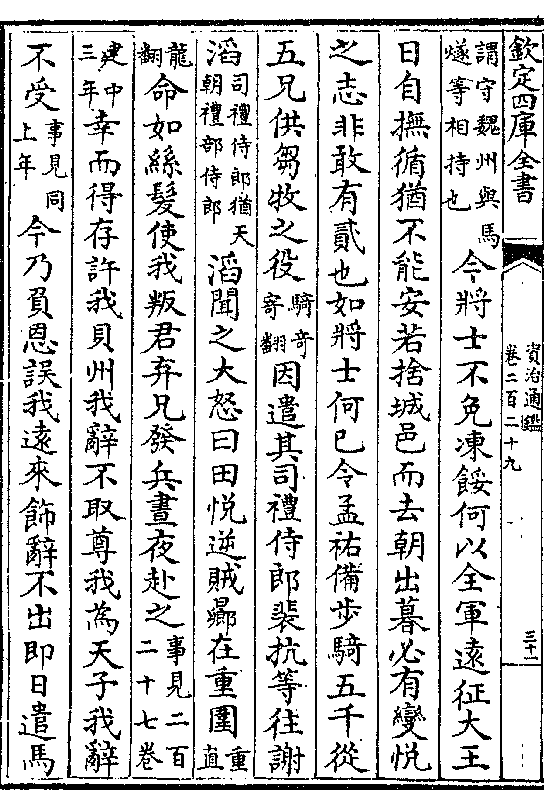 欽定四庫全書
資治通鑑
卷二百二十九
三十一
謂守魏州與馬
燧等相持也
今將士不免凍餒何以全軍遠征大王
日自撫循猶不能安若捨城邑而去朝出暮必有變悅
之志非敢有貳也如將士何已令孟祐備步騎五千從
五兄供芻牧之役
騎奇
寄翻
因遣其司禮侍郎裴抗等往謝
滔
司禮侍郎猶天
朝禮部侍郎
滔聞之大怒曰田悅逆賊曏在重圍
重
直
龍
翻
命如絲髮使我叛君弃兄發兵晝夜赴之
事見二百
二十七卷
建中
三年
幸而得存許我貝州我辭不取尊我為天子我辭
不受
事見同
上年
今乃負恩誤我遠來飾辭不出即日遣馬